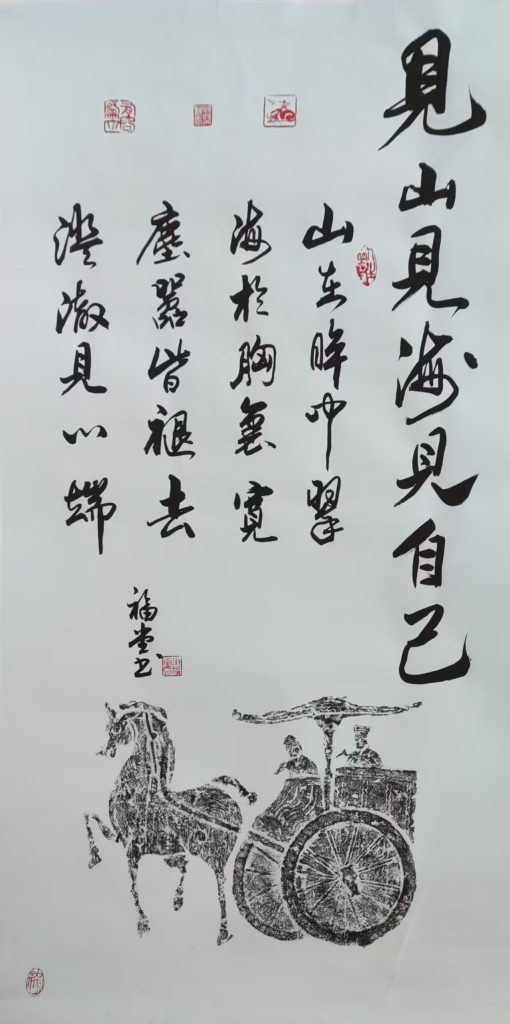 見山見海見自己
山在眸中翠
海於胸裏寬
塵囂皆褪去
澄澈見心端
福堂书